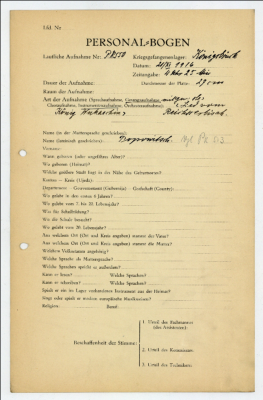 Lfd. Nr.
PERSONAL-BOGEN
Lautliche Aufnahme Nr.: PK 550 Kriegsgefangenenlager: Königsbrück
Datum: 1916
Zeitangabe: 4 Uhr 25 Min
Dauer der Aufnahme: Durchmesser der Platte: 27 cm
Raum der Aufnahme:
Art der Aufnahme (Sprechaufnahme, Gesangsaufnahme,
Choraufnahme, Instrumentenaufnahme, Orchesteraufnahme): Lied vom
König
Name (in der Muttersprache geschrieben):
Name (lateinisch geschrieben): Popowitsch
Vorname:
Wann geboren (oder ungefähres Alter)?
Wo geboren (Heimat)?
Welche größere Stadt liegt in der Nähe des Geburtsortes?
Kanton — Kreis (Ujedz):
Departement — Gouvernement (Gubernija) — Grafschaft (County):
Wo gelebt in den ersten 6 Jahren?
Wo gelebt vom 7. bis 20. Lebensjahr?
Was für Schulbildung?
Wo die Schule besucht?
Wo gelebt vom 20. Lebensjahr?
Aus welchem Ort (Ort und Kreis angeben) stammt der Vater?
Aus welchem Ort (Ort und Kreis angeben) stammt die Mutter?
Welchem Volksstamm angehörig?
Welche Sprache als Muttersprache?
Welche Sprachen spricht er außerdem?
Kann er lesen? Welche Sprachen?
Kann er schreiben? Welche Sprachen?
Spielt er ein im Lager vorhandenes Instrument aus der Heimat?
Singt oder spielt er modern europäische Musikweisen?
Religion: Beruf:
1. Urteil des Fachmannes
(des Assistenten):
Beschaffenheit der Stimme:
2. Urteil des Kommissars:
3. Urteil des Technikers: